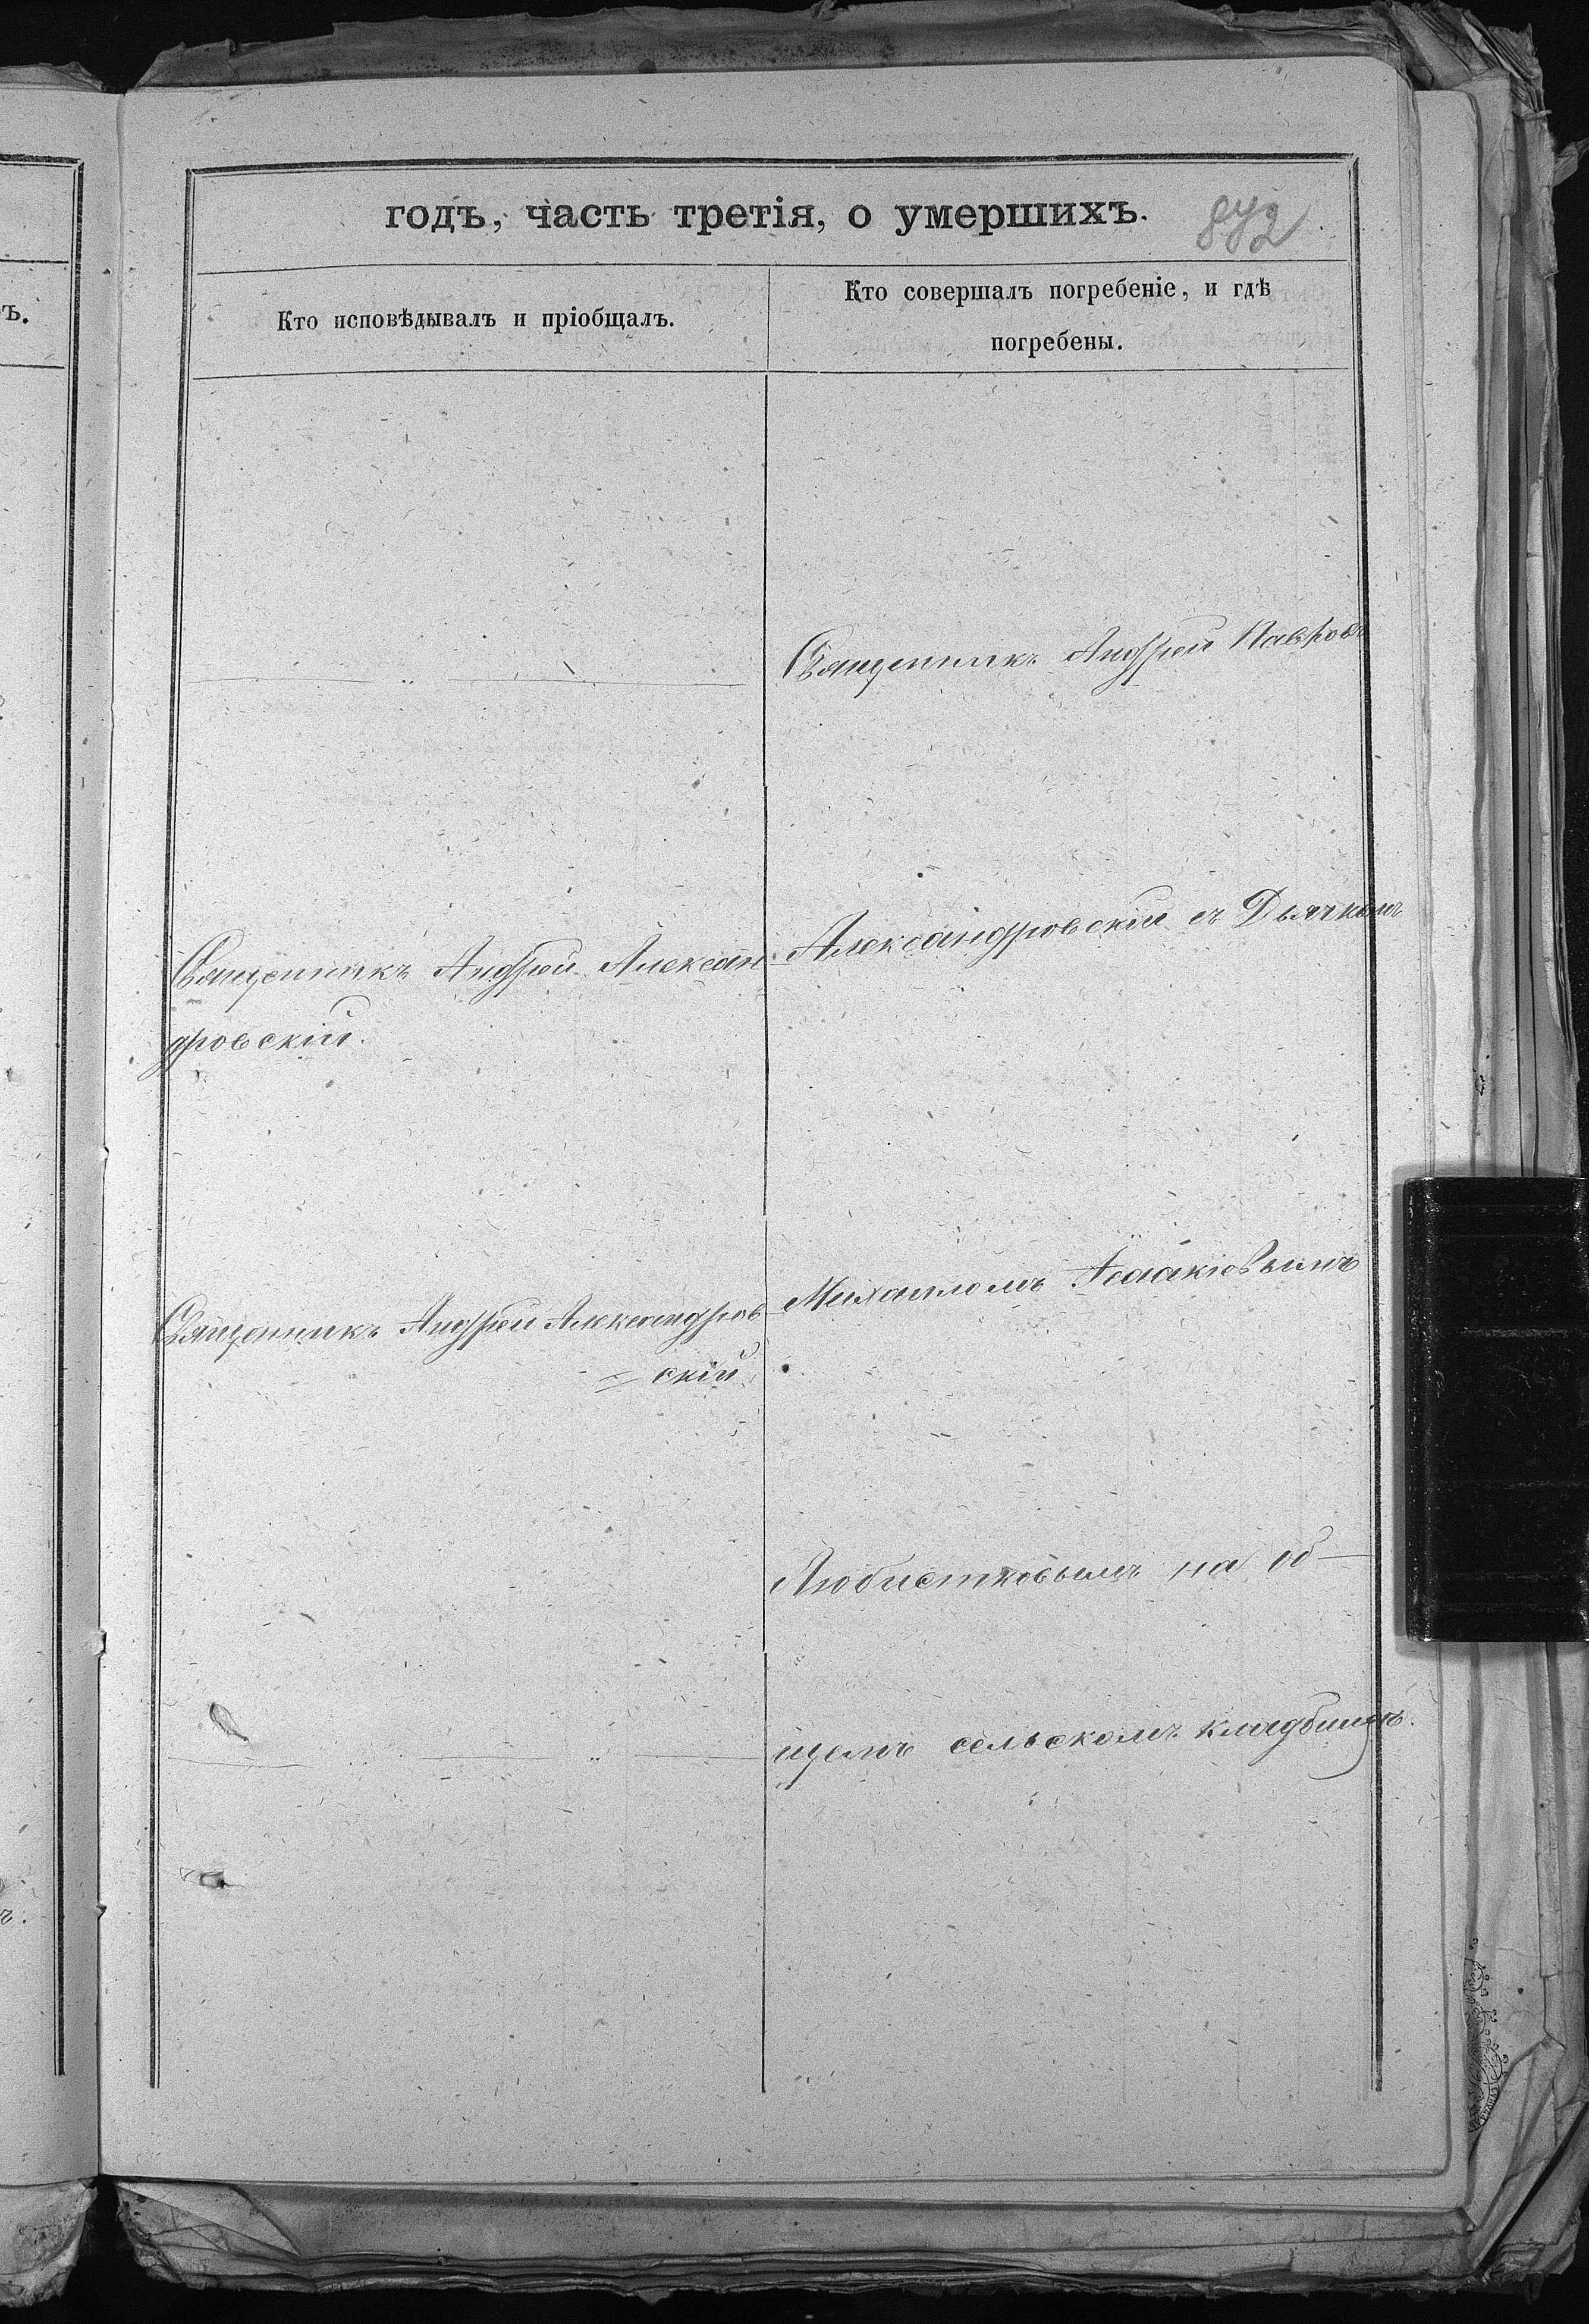 годъ, часть третія, о умершихъ.
872
Кто исповѣдывалъ и пріобщалъ.
Кто совершалъ погребеніе, и гдѣ
погребены.
Священникъ Андрей
Священникъ Андрей Алексан
дровскій.
Александровскій съ Дьячкомъ
Священникъ Андрей Александров
= скій
Михаиломъ Исаакіевымъ
Любистковымъ на об-
щемъ сельскомъ кладбищѣ.